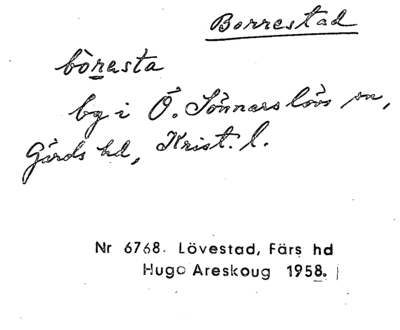 Borrestad
bòresta
by i Ö. Sönnarslövs sn,
Gärds hd, Krist. l.
Nr 6768. Lövestad, Färs hd
Hugo Areskoug 1958.